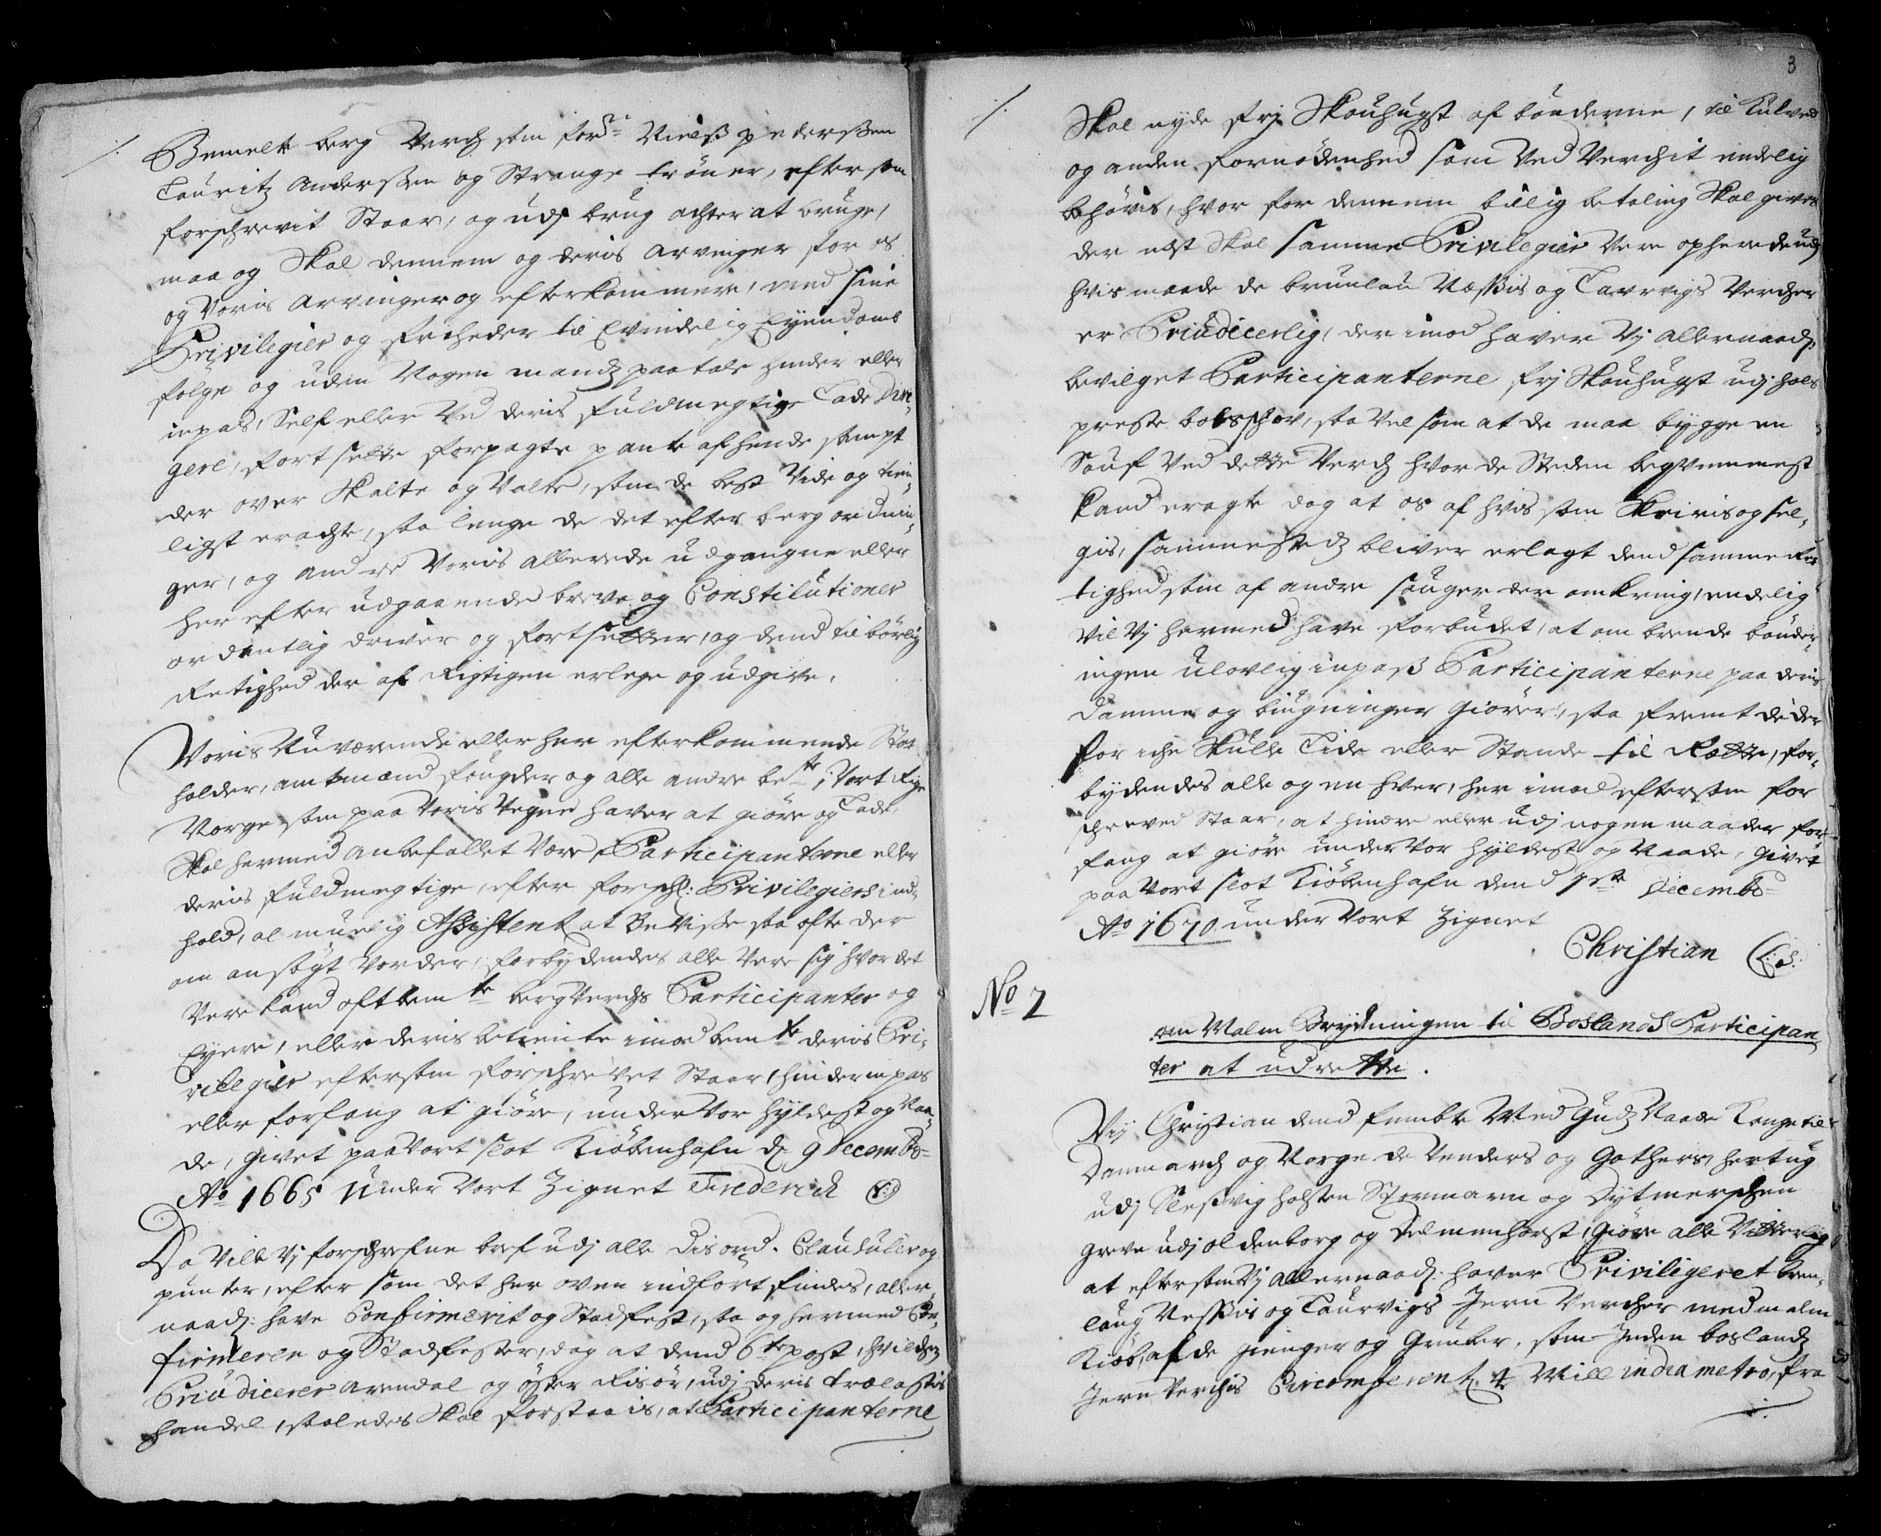 /.
Bemelte berg Verch som forne Nielss pederssen
Lauritz Anderssen og Strange trøner, eftersom
forschrevit Staar, og udj brug achter at bruge,
maa og Skal dennem og deris Arvinger for os
og Voris Arvinger og efterkommere, med sine
Privilegier og friheder til Evindelig Eyendoms
følge og uden Nogen mands paatale hinder eller
inpas, Self eller Ved deris fuldmegtige Lade Dri¬
gere, fortsette forpagte pante afhende stempt
der over Skalte og Valte, som de best Vide og tien¬
ligst erachte, saa lenge de det efter berg ordnin¬
ger, og andre Voris allerede udgangne eller
her efter udgaaende breve og Constitutioner
ordentlig driver og fortsetter, og dend tilbørlig
Retighed der af Rigtigen erlege og udgive.
Voris Nuværende eller her efterkommende Stat
holder, amtmænd fougder og alle andre bete i Vort Rige
Norge som paa Voris Vegne haver at giøre og Lade
Skal hermed anbefallet Være, Participanterne eller
deris fuldmegtige, efter forschl: Privilegiers ind¬
hold, al muelig Assistent at Bevisse saa ofte der
om ansøgt Vorder, forbydendes alle Vere sig hvor det
Vere kand oftbemte bergverchs Participanter og
Eyere, eller deris betiente imod bemte deris Pri¬
vilegier eftersom forschrevet Staar, hinder inpas
eller forfang at giøre, under Vor hyldest og Naa¬
de, Givet paa Vort slot Kiøbenhafn d: 9 Decembr
Ao 1665 Under Vort Zignet Frederich (L:S)
Da Ville Vj forschrefne bref udj alle dis ord. Clausuler og
puncter, efter som det her oven indført findes, aller¬
naad: have Confirmerit og Stadfest, saa og hermed Con¬
firmerer og Stadfester, dog at dend 6te post, hvilchen
Priudicerer Arendal og øster Risør, udj deris trælast
handel, saaledes Skal forstaais, at Participanterne
3
/.
Skal nyde frj Skouhugst af bønderne, til Kulved
og anden fornødenhed som Ved Verchit endelig
behøvis, hvor for dennem billig betaling Skal gives
der nest Skal samme Privilegier Vere ophevede udj
hvis maade de brunlau Næssis og Laurvigs Vercher
er Priudicerlig, der imod haver Vj Allernaad:
bevilget Participanterne frj Skouhugst udj hols
preste bolsschov, saa Vel som at de maa bygge en
Sauf Ved dette Verch hvor de Steden beqvemmest
kand eragte dog at os af hvis som Skieris og sel¬
gis, sammesteds bliver erlagt dend samme Ret
tighed som af andre sauger der omkring, endelig
Vil Vj hermed have forbudet, at om brende bønder¬
ingen Ulovlig inpass Participanterne paa deris
damme og biugninger giører, saa fremt de der
for iche Skulle Lide eller Stande til Rette, for¬
bydendes alle og en hver, her imod eftersom for
schrevved Staar, at hindre eller udj nogen maader for¬
fang at giøre under Vor hyldest og Naade, Givet
paa Vort slot Kiøbenhafn dend 7de Decembr
Ao 1670 under Vort Zignet
Christian (L:S:
No 2
om Malm Brydningen til Boslands Participan¬
ter at udrette.
Vij Christian dend femte Med Guds Naade Konge til
Danmarch og Norge de Venders og Gothers, hertug
udj Slessvig holsten Stormarn og Dytmerschen
Greve udj oldenborg og Delmenhorst, Giøre alle Vitterlig
at eftersom Vj Allernaad: haver Priviligeret brun¬
laug Nessis og Laurvigs Jern Vercher med malm
Kiøb, af de gienger og Gruber, som Inden boslands
Jern Verchis Circomferentz 4 Mill in diametro, fra